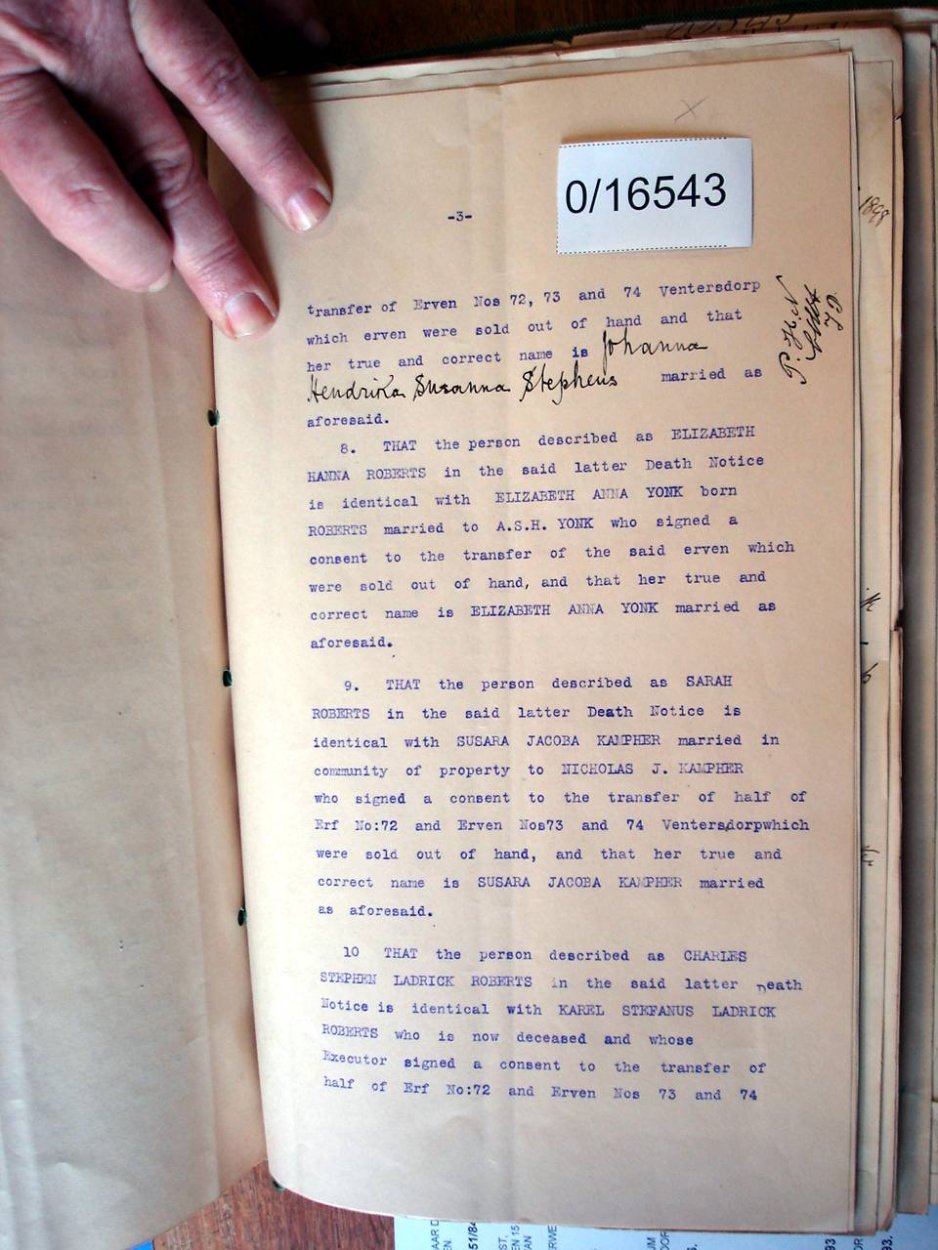 0/16543
-3-
transfer of Erven Nos 72, 73 and 74 Ventersdorp
which erven were sold out of hand and that
her true and correct name is Johanna
Hendrika Susanna Stephens married as
aforesaid.
8. THAT the person described as ELIZABETH
HANNA ROBERTS in the said latter Death Notice
is identical with ELIZABETH ANNA YONK born
ROBERTS married to A.S.H. YONK who signed a
consent to the transfer of the said erven which
were sold out of hand, and that her true and
correct name is ELIZABETH ANNA YONK married as
aforesaid.
9. THAT the person described as SARAH
ROBERTS in the said latter Death Notice is
identical with SUSARA JACOBA KAMPHER married in
community of property to NICHOLAS J. KAMPHER
who signed a consent to the transfer of half of
Erf No:72 and Erven Nos73 and 74 Ventersdorpwhich
were sold out of hand, and that her true and
correct name is SUSARA JACOBA KAMPHER married
as aforesaid.
10 THAT the person described as CHARLES
STEPHEN LADRICK ROBERTS in the said latter Death
Notice is identical with KAREL STEFANUS LADRICK
ROBERTS who is now deceased and whose
Executor signed a consent to the transfer of
half of Erf No:72 and Erven Nos 73 and 74
P. H. N
1898
51/84
EN 15
93
93.